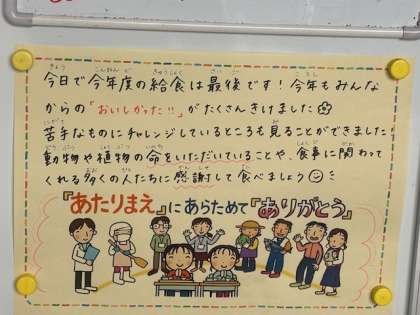 今日で今年度の給食は最後です！今年もみんな
からの「おいしかった!!」がたくさんきけました
苦手なものにチャレンジしているところも見ることができました！
動物や植物の命をいただいていることや、食事に関わって
くれる多くの人たちに感謝して食べましょう
『あたりまえ』にあらためて『ありがとう』